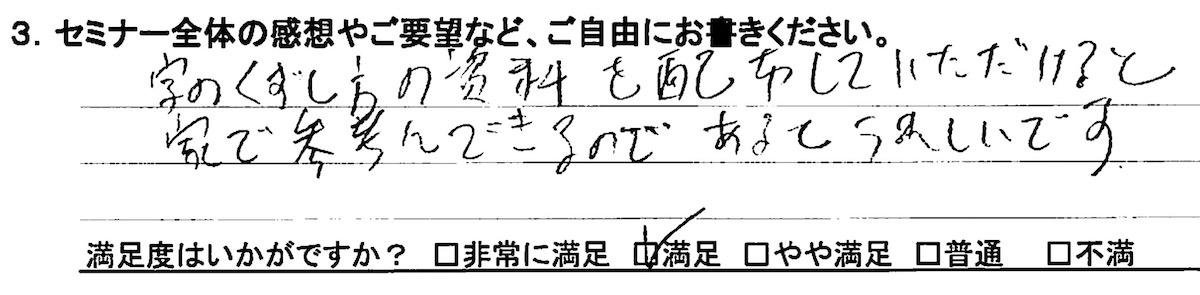 3. セミナー全体の感想やご要望など、ご自由にお書きください。
字のくずし方の資料を配布していただけると
家で参考にできるのであるとうれしいです
満足度はいかがですか？ □非常に満足 ☑満足 □やや満足 □普通 □不満